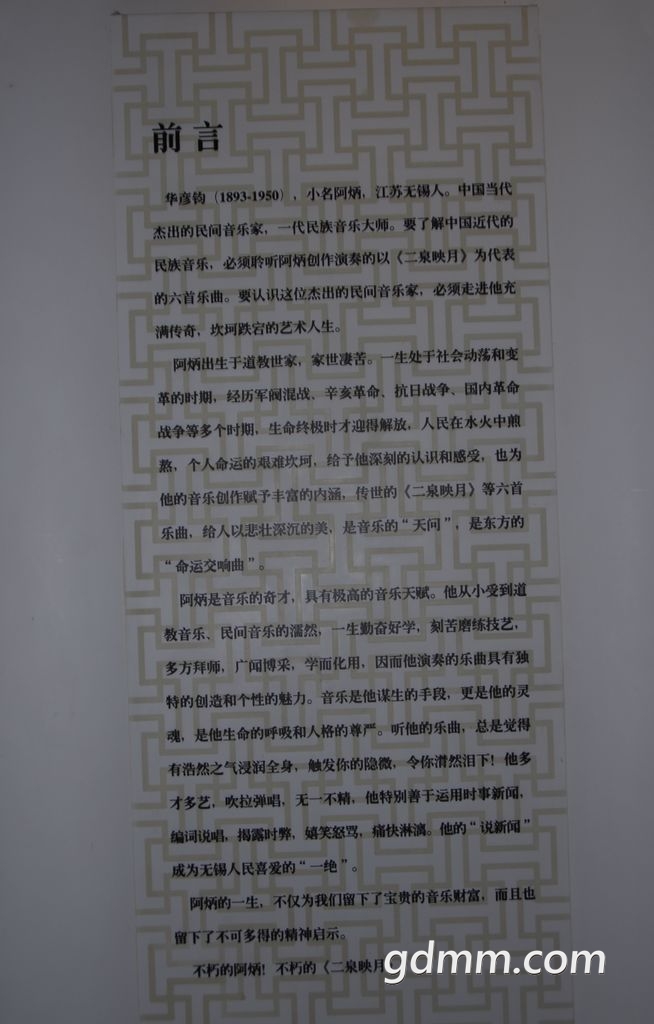 前言
华彦钧（1893-1950），小名阿炳，江苏无锡人。中国当代
杰出的民间音乐家，一代民族音乐大师。要了解中国近代的
民族音乐，必须聆听阿炳创作演奏的以《二泉映月》为代表
的六首乐曲。要认识这位杰出的民间音乐家，必须走进他充
满传奇，坎坷跌宕的艺术人生。
阿炳出生于道教世家，家世凄苦。一生处于社会动荡和变
革的时期，经历军阀混战、辛亥革命、抗日战争、国内革命
战争等多个时期，生命终极时才迎得解放，人民在水火中煎
熬，个人命运的艰难坎坷，给予他深刻的认识和感受，也为
他的音乐创作赋予丰富的内涵，传世的《二泉映月》等六首
乐曲，给人以悲壮深沉的美，是音乐的“天问”，是东方的
“命运交响曲”。
阿炳是音乐的奇才，具有极高的音乐天赋。他从小受到道
教音乐、民间音乐的濡然，一生勤奋好学，刻苦磨练技艺，
多方拜师，广闻博采，学而化用，因而他演奏的乐曲具有独
特的创造和个性的魅力。音乐是他谋生的手段，更是他的灵
魂，是他生命的呼吸和人格的尊严。听他的乐曲，总是觉得
有浩然之气浸润全身，触发你的隐微，令你潸然泪下！他多
才多艺，吹拉弹唱，无一不精，他特别善于运用时事新闻，
编词说唱，揭露时弊，嬉笑怒骂，痛快淋漓。他的“说新闻”
成为无锡人民喜爱的“一绝”。
阿炳的一生，不仅为我们留下了宝贵的音乐财富，而且也
留下了不可多得的精神启示。
不朽的阿炳！不朽的《二泉映月
gdmm.com